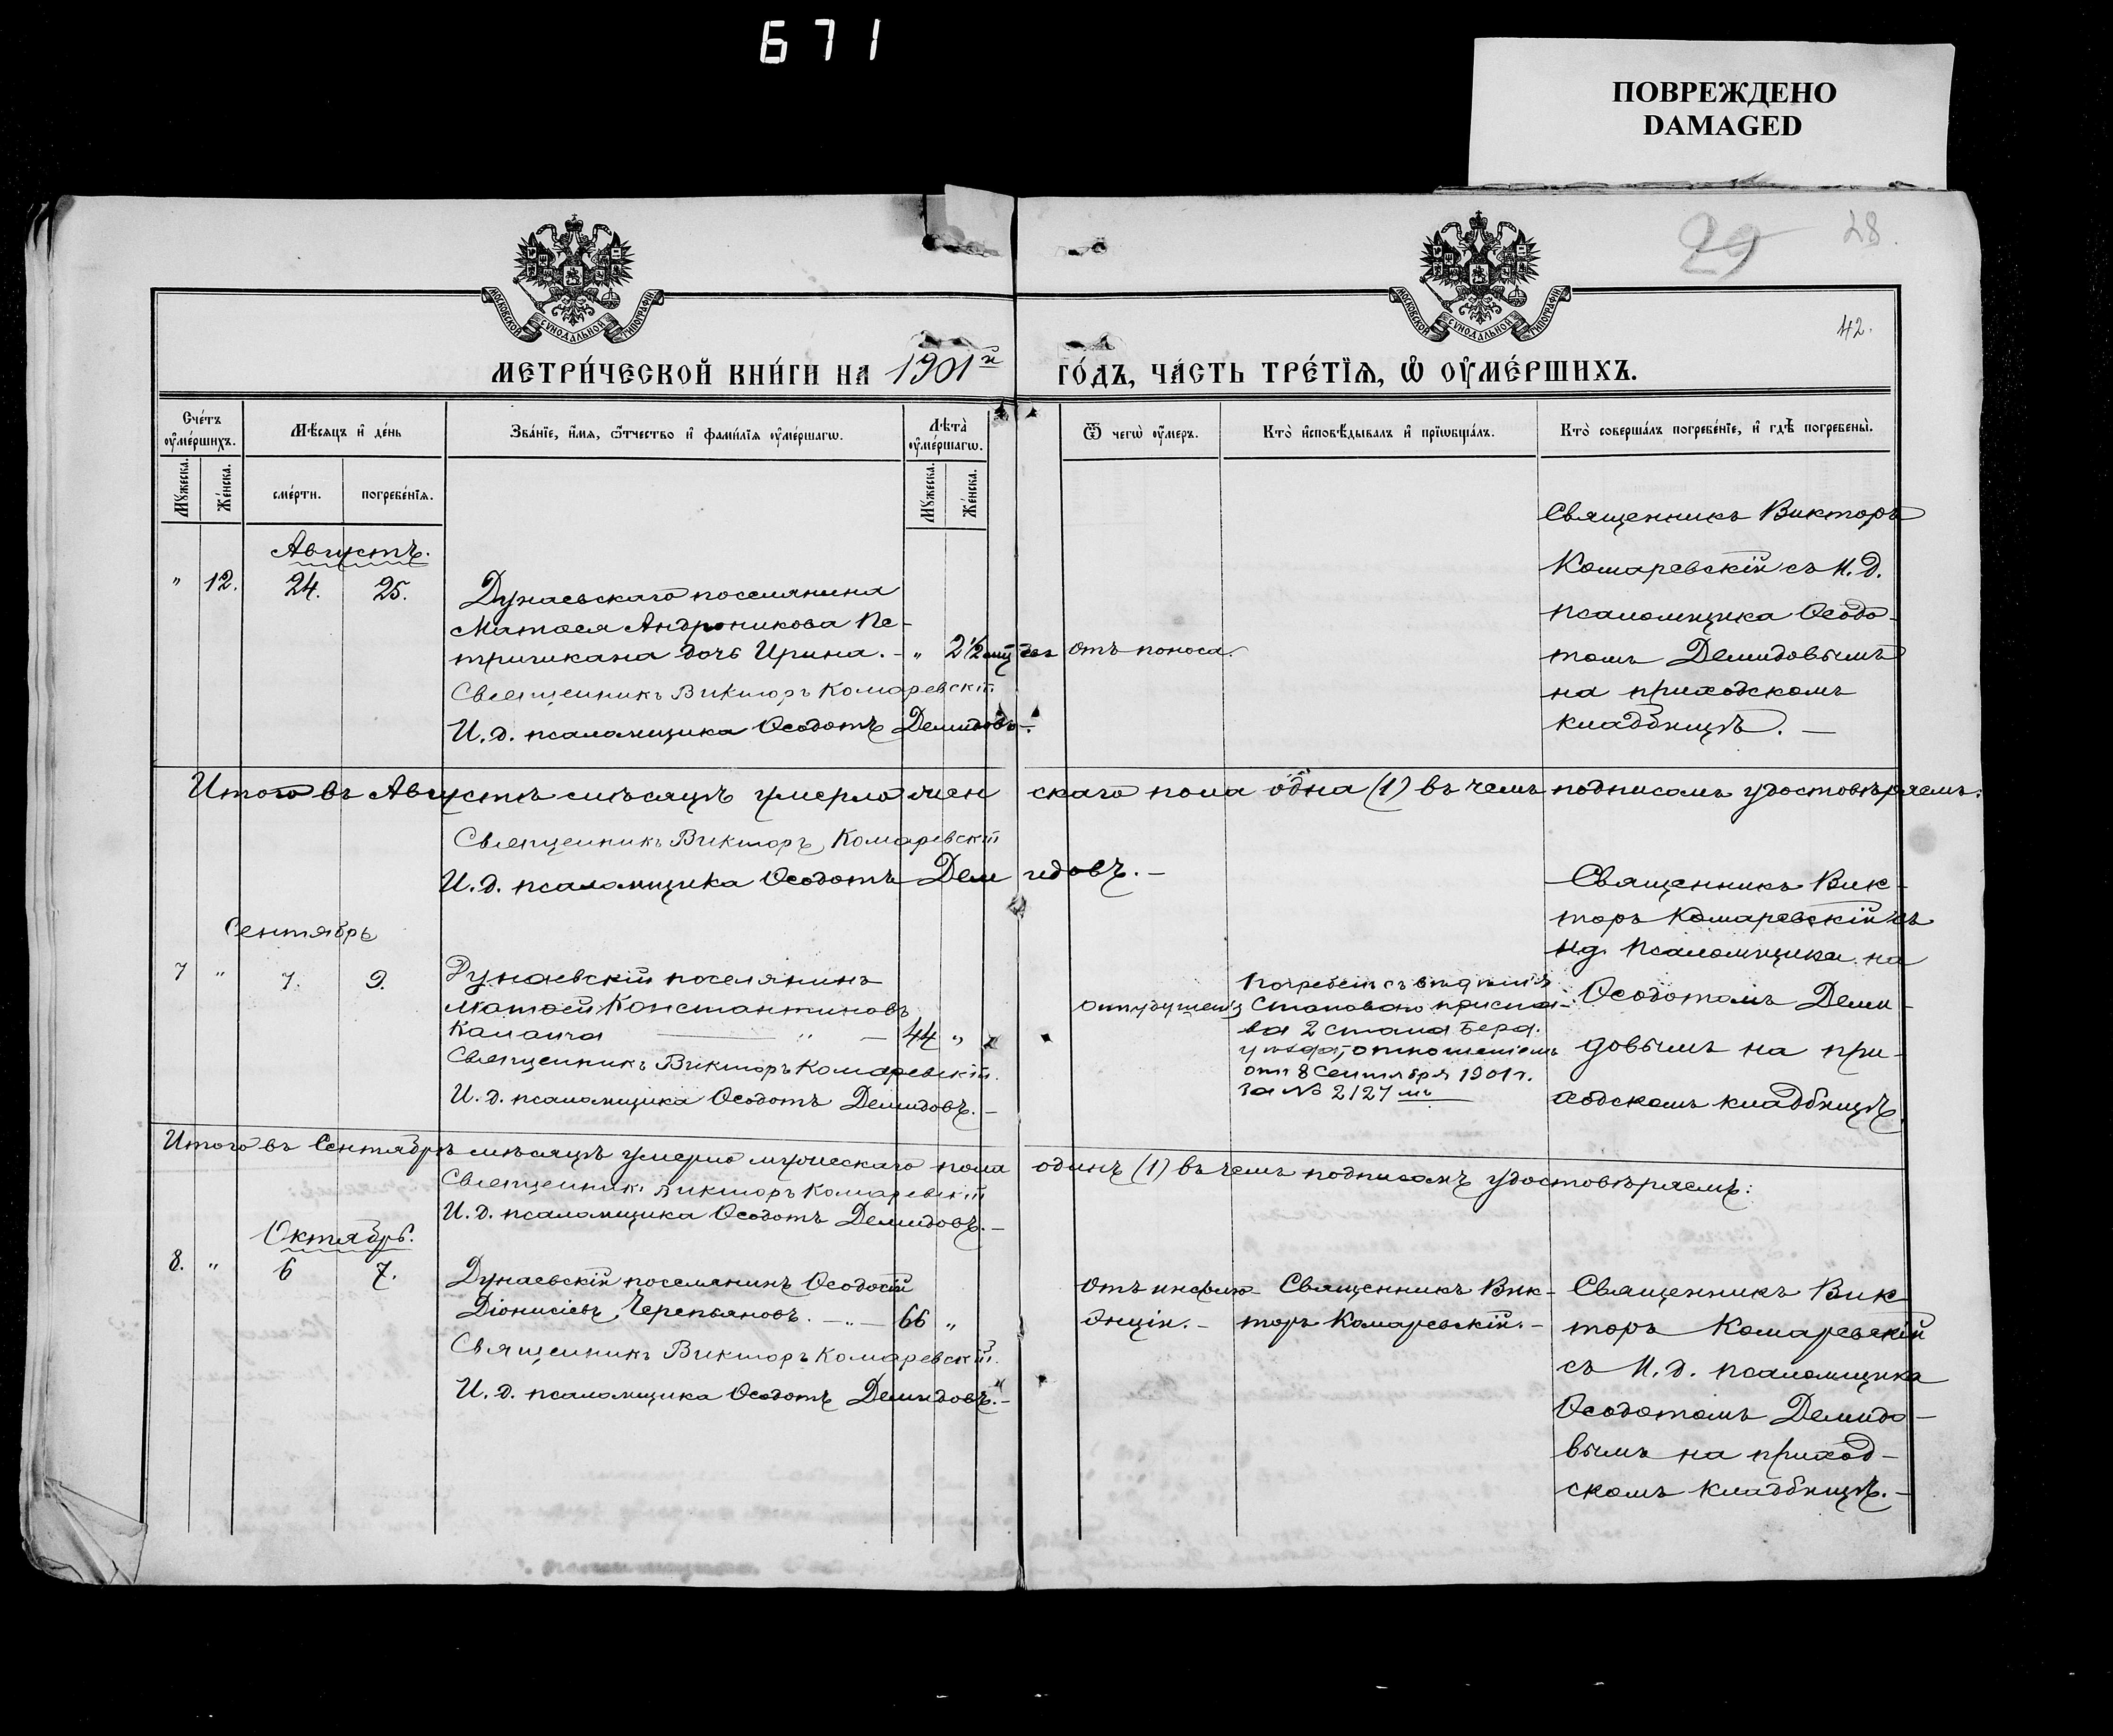 671
ПОВРЕЖДЕНО
DAMAGED
29 28.
42.
МОСКОВСКОЙ СѴНОДАЛЬНОЙ ТИПОГРАФІИ
МОСКОВСКОЙ СѴНОДАЛЬНОЙ ТИПОГРАФІИ
МЕТРИ́ЧЕСКОЙ КНИ́ГИ НА 1901й ГО́ДЪ, ЧА́СТЬ ТРЕ́ТЇѦ, Ѽ ОУ҆МЕ́РШИХЪ.
Сче́тъ оу҆ме́ршихъ.
Мꙋжеска.
Же́нска.
Мѣ́сѧцъ и҆ де́нь
сме́рти.
погребе́нїѧ.
Зва́нїе, и҆́мѧ, ѻ҆́тчество и҆ фами́лїѧ оу҆ме́ршагѡ.
Лѣ́та оу҆ме́ршагѡ.
Мꙋжеска.
Же́нска.
Ѿ чегѡ̀ оу҆́меръ.
Кто̀ и҆сповѣ́дывалъ и҆ прїѡбща́лъ.
Кто̀ соверша́лъ погребе́нїе, и҆ гдѣ̀ погребены̀.
Августъ.
" 12. 24. 25.
Дунаевскаго поселянина
Матѳея Андроникова Пе-
тричикана дочь Ирина. - " 2½
Священникъ Викторъ Комаревскій
И. д. псаломщика Ѳеодотъ Демидовъ.
Отъ поноса.
Священникъ Викторъ
Комаревскій съ И. д.
псаломщика Ѳеодо-
томъ Демидовымъ
на приходскомъ
кладбищѣ. —
Итого въ Августѣ мѣсяцѣ умерло женскаго пола одна (1) въ чемъ подписомъ удостовѣряемъ:
Священникъ Викторъ Комаревскій
И. д. псаломщика Ѳеодотъ Демидовъ. -
Сентябрь
7 " 7. 9.
Дунаевскій поселянинъ
Матѳей Константиновъ
Каланча — " — 44 "
Священникъ Викторъ Комаревскій.
И. д. псаломщика Ѳеодотъ Демидовъ. -
Становаго приста-
ва 2 стана Берд.
уѣзда, отношеніемъ
отъ 8 Сентября 1901 г.
за № 2127 мъ
Священникъ Вик-
торъ Комаревскій съ
ид. Псаломщика на
Ѳеодотомъ Деми-
довымъ на при-
ходскомъ кладбищѣ.
Итого въ Сентябрѣ мѣсяцѣ умерло мужескаго пола одинъ (1) въ чемъ подписомъ удостовѣряемъ:
Священникъ Викторъ Комаревскій
И. д. псаломщика Ѳеодотъ Демидовъ. -
Октябрь.
8. " 6 7.
Дунаевскій поселянинъ Ѳеодосій
Діонисіевъ Черепьяновъ. - " - 66 "
Священникъ Викторъ Комаревскій.
И. д. псаломщика Ѳеодотъ Демидовъ. -
Священникъ Вик-
торъ Комаревскій. -
Священникъ Вик-
торъ Комаревскій
съ И. д. псаломщика
Ѳеодотомъ Демидо-
вымъ на приход-
скомъ кладбищѣ. -